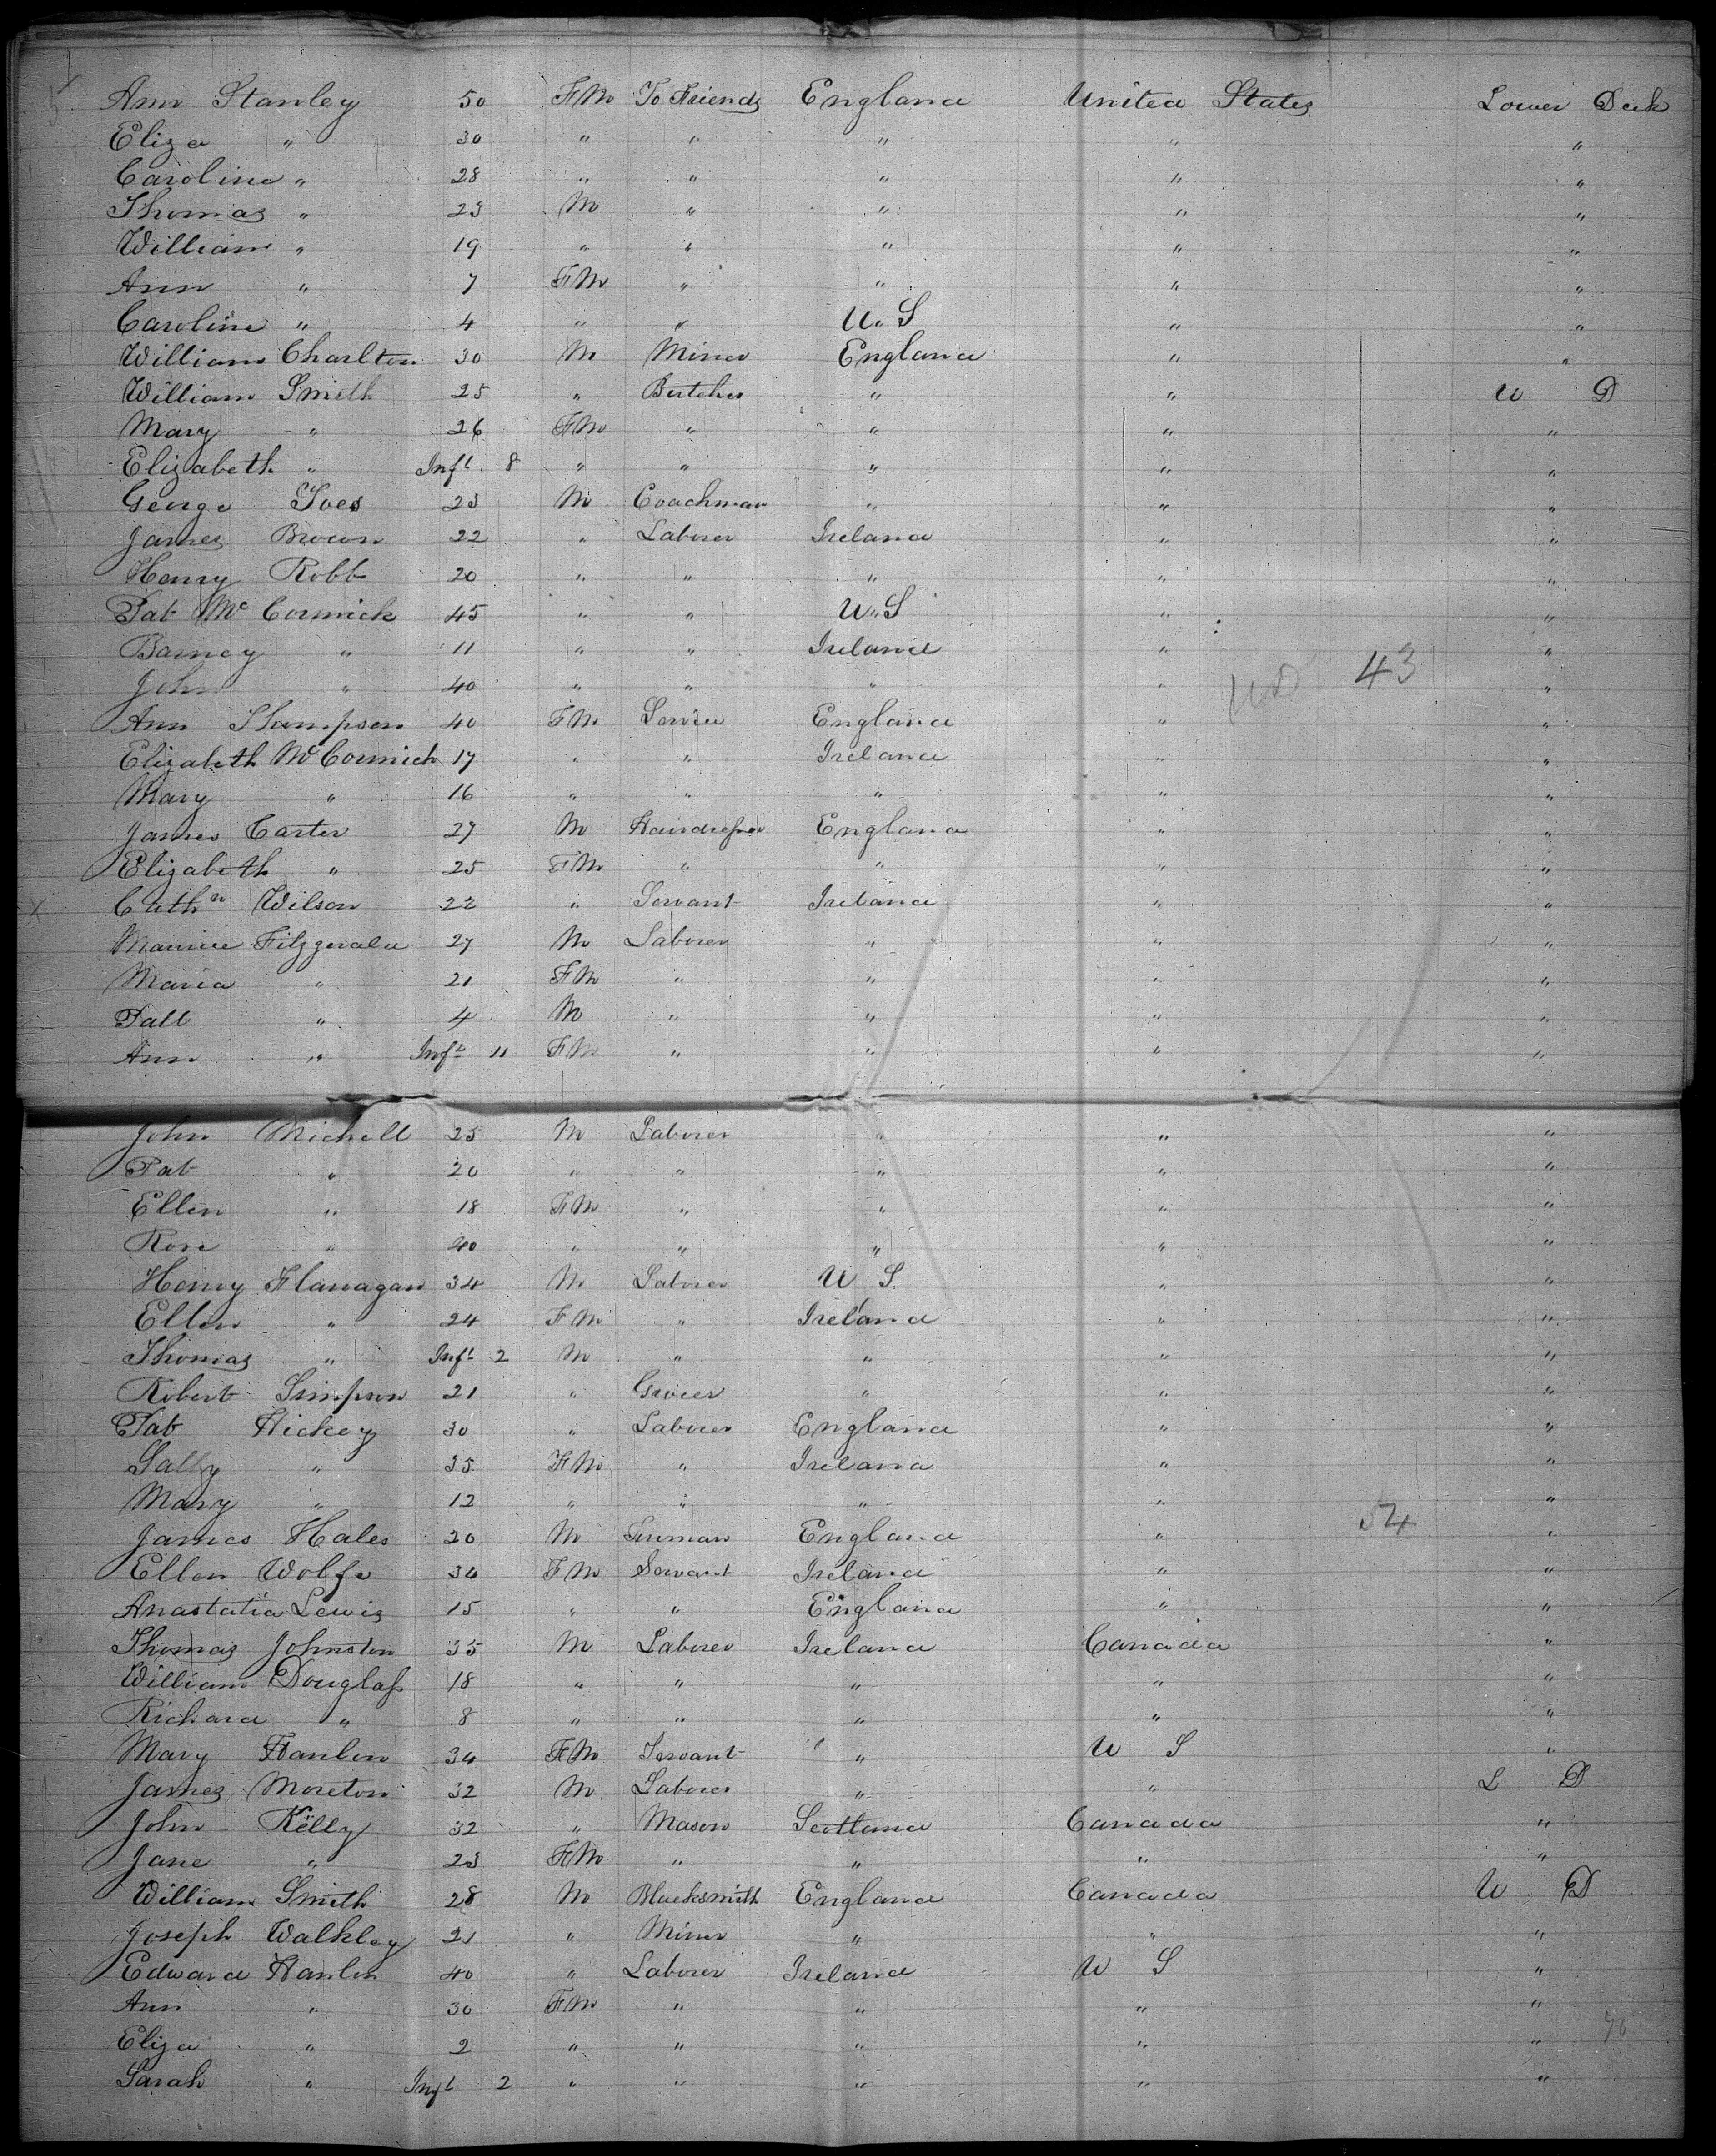 Ann Stanley 50 FM To Friends England United States Lower Deck
Eliza " 30 " " " " "
Caroline " 28 " " " " "
Thomas " 23 M " " " "
William " 19 " " " " "
Ann " 7 FM " " " "
Caroline " 4 " " U"S " "
William Charlton 30 M Miner England " "
William Smith 25 " Butcher " " U D
Mary " 26 FM " " " "
Elizabeth " Inft 8 " " " " "
George 23 M Coachman " " "
James Brown 22 " Laborer Ireland " "
Henry Robb 20 " " " " "
Pat McCormick 45 " " U"S " "
Barney " 11 " " Ireland " "
John " 40 " " " " "
43
Ann Thompson 40 FM Service England " "
Elizabeth McCormick 17 " " Ireland " "
Mary " 16 " " " " "
James Carter 27 M Hairdresser England " "
Elizabeth " 25 FM " " " "
Cathn Wilson 22 " Servant Ireland " "
Maurice Fitzgerald 27 M Laborer " " "
Maria " 21 FM " " " "
Patt " 4 M " " " "
Ann " Inft 11 FM " " " "
John Michell 25 M Laborer " " "
Pat " 20 " " " " "
Ellen " 18 FM " " " "
Rose " " " " " "
Henry Flanagan 34 M Laborer U S " "
Ellen " 24 FM " Ireland " "
Thomas " Inft 2 M " " " "
Robert Simpson 21 " Grocer " " "
Pat Hickey 30 " Laborer England " "
Sally " 35 FM " Ireland " "
Mary " 12 " " " " "
James Hales 20 M England " "
Ellen Wolfe 34 FM Servant Ireland " "
Anastatia Lewis 15 " " England " "
Thomas Johnston 35 M Laborer Ireland Canada "
William Douglass 18 " " " " "
Richard " 8 " " " " "
Mary Hanlon 34 FM Servant " U S "
James Moreton 32 M Laborer " " L D
John Kelly 32 " Mason Scotland Canada "
Jane " 23 FM " " " "
William Smith 28 M Blacksmith England Canada U D
Joseph Walkley 21 " Miner " " "
Edward Hanlon 40 " Laborer Ireland U S "
Ann " 30 FM " " " "
Eliza " 2 " " " " "
Sarah " Inft 2 " " " " "